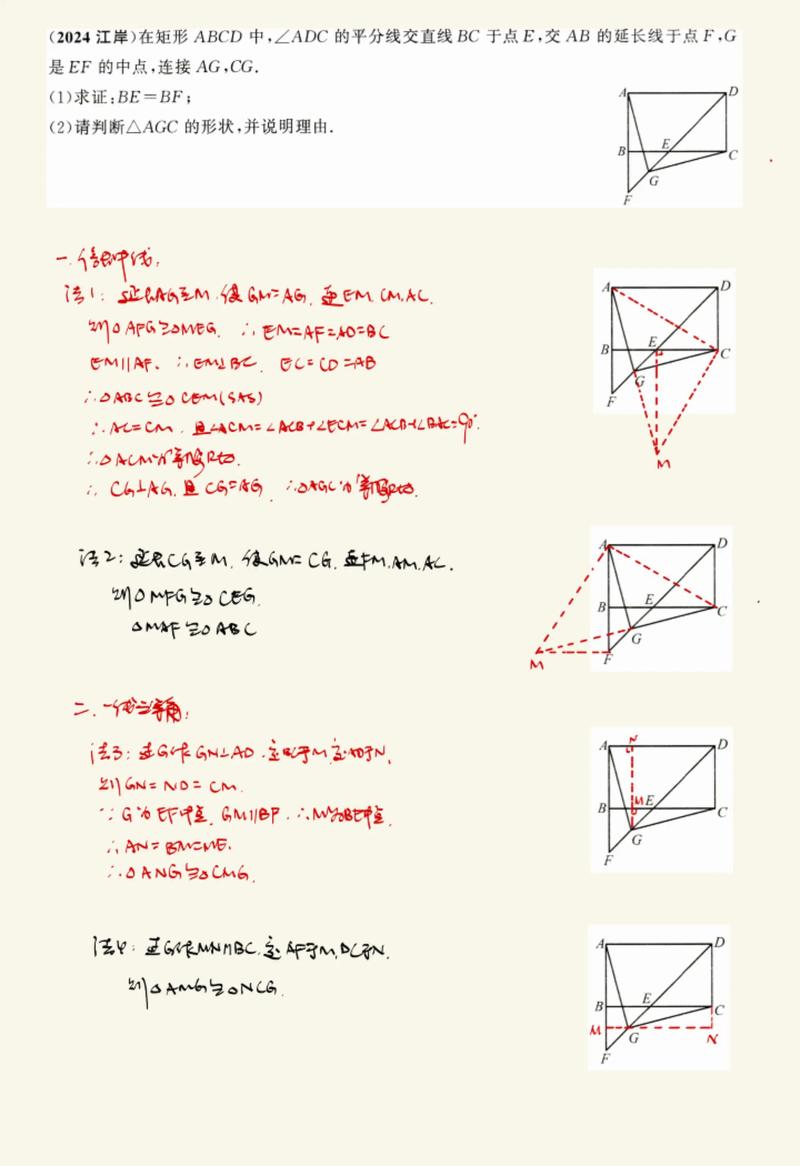 (2024 江岸)在矩形 ABCD 中,∠ADC 的平分线交直线 BC 于点 E,交 AB 的延长线于点 F,G
是 EF 的中点,连接 AG,CG.
(1)求证:BE=BF;
(2)请判断△AGC 的形状,并说明理由.
A
D
B
E
C
G
F
一.倍长中线:
法1: 延长AG至M,使GM=AG,连EM,CM,AC.
则△AFG≌△MEG. ∴EM=AF=AD=BC
EM∥AF. ∴EM⊥BC. EC=CD=AB
∴△ABC≌△CEM(SAS)
∴AC=CM. 且∠ACM=∠ACB+∠ECM=∠ACB+∠BAC=90°.
∴△ACM为等腰Rt△.
∴CG⊥AG.且CG=AG ∴△AGC为等腰Rt△.
A
D
B
E
C
G
F
M
法2: 延长CG至M,使GM=CG,连FM,AM,AC.
则△MFG≌△CEG.
△MAF≌△ABC
A
D
B
E
C
G
M
F
二.一线三等角:
法3: 过G作GN⊥AD.交BC于M,交AD于N,
则GN=ND=CM.
∵G为EF中点,GM∥BF.∴M为BE中点,
∴AN=BM=ME.
∴△ANG≌△CMG.
A
N
D
B
M
E
C
G
F
法4: 过G作MN∥BC.交AF于M,DC于N.
则△AMG≌△NCG.
A
D
B
E
C
M
G
N
F